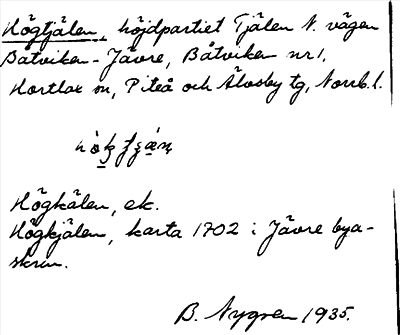 Högtjälen, höjdpartiet Tjälen N. vägen
Båtviken - Jävre, Båtviken nr 1,
Hortlax sn, Piteå och Älvsby tg, Norrb. l.
Högkälen, ek.
Högkjälen, karta 1702 i Jävre bya-
skrin.
B. Nygren 1935.